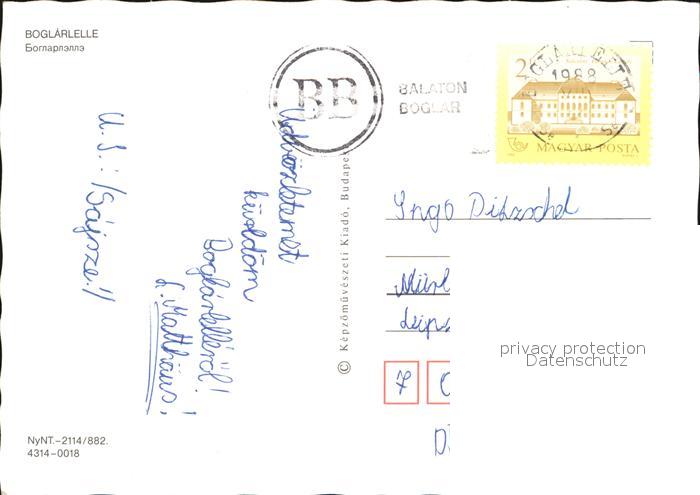 BOGLÁRLELLE
Богларлэллэ
BB
BALATON
BOGLÁR
BOGLÁRLELLE
1988
2
MAGYAR POSTA
Üdvözletemet
küldöm
Boglárlelléről!
Matthäus!
U.i.:
© Képzőművészeti Kiadó, Budapest
Ingo
Leipz
7
D
privacy protection
Datenschutz
NyNT.–2114/882.
4314–0018